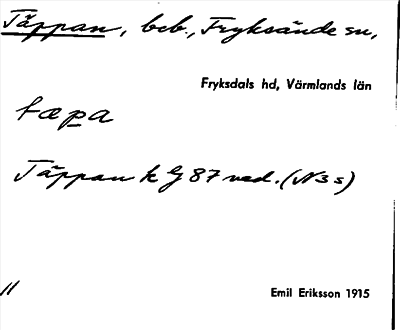 Täppan, beb., Fryksände sn,
Fryksdals hd, Värmlands län
tæpa
Täppan k 87 ned. (N3s)
11
Emil Eriksson 1915